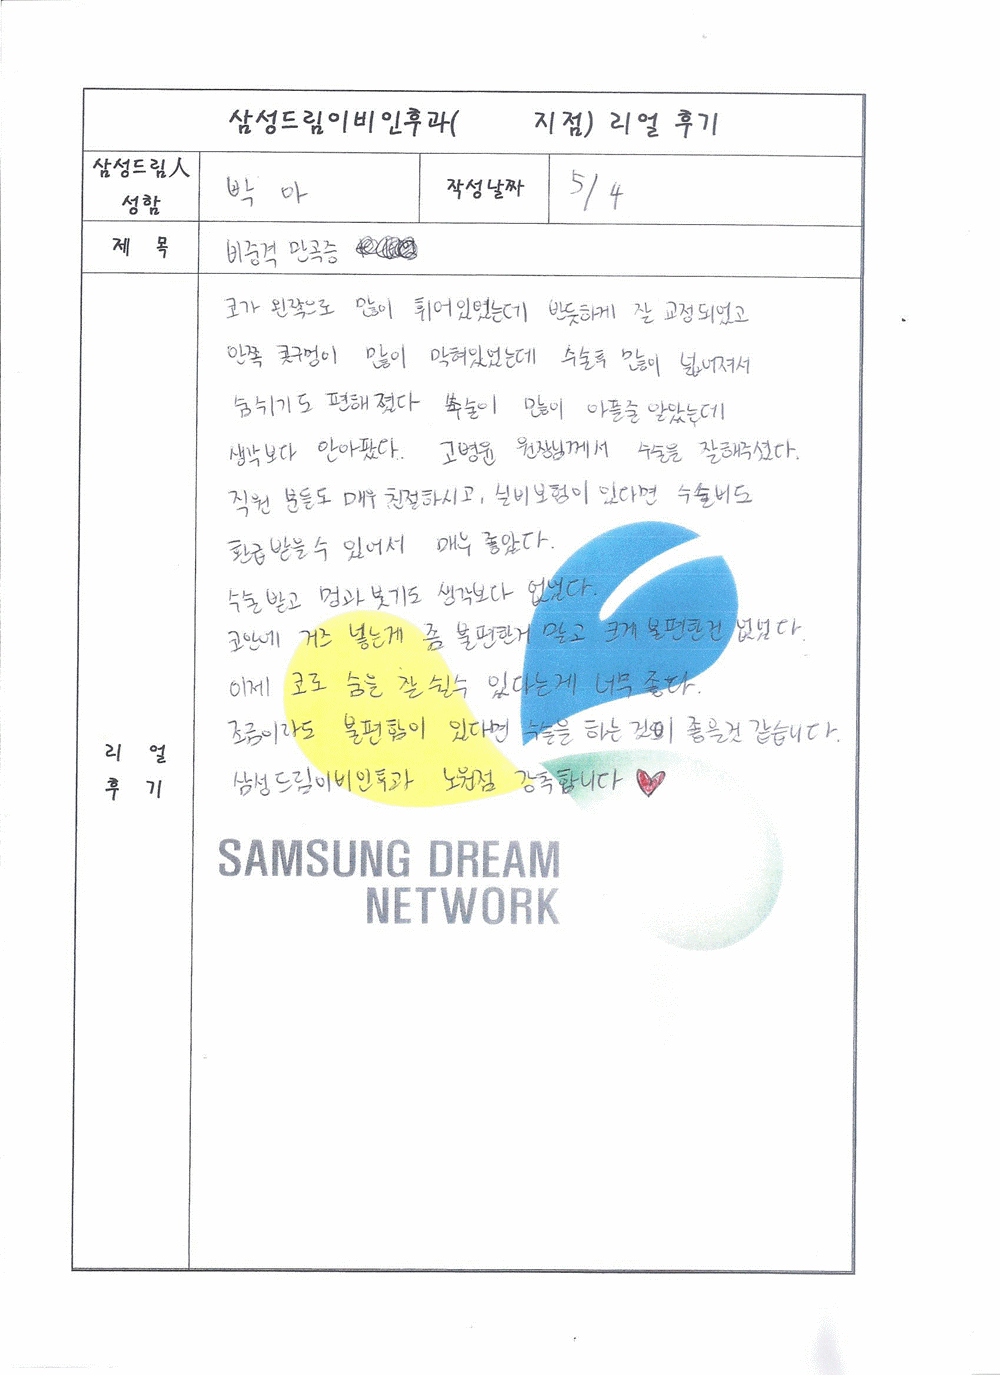 삼성드림이비인후과(          지점) 리얼 후기
삼성드림人 성함
박 아
작성날짜
5/4
제 목
비중격 만곡증
리 얼 후 기
코가 왼쪽으로 많이 휘어있었는데 반듯하게 잘 교정되었고
안쪽 콧구멍이 많이 막혀있었는데 수술후 많이 넓어져서
숨쉬기도 편해졌다 수술이 많이 아플줄 알았는데
생각보다 안아팠다. 고병윤 원장님께서 수술을 잘해주셨다.
직원 분들도 매우 친절하시고, 실비보험이 있다면 수술비도
환급받을수 있어서 매우 좋았다.
수술 받고 멍과 붓기도 생각보다 없었다.
코안에 거즈 넣는게 좀 불편한거 말고 크게 불편한건 없었다.
이제 코로 숨을 잘 쉴수 있다는게 너무 좋다.
조금이라도 불편함이 있다면 수술을 하는 것이 좋을것 같습니다.
삼성드림이비인후과 노원점 강추합니다
SAMSUNG DREAM
NETWORK